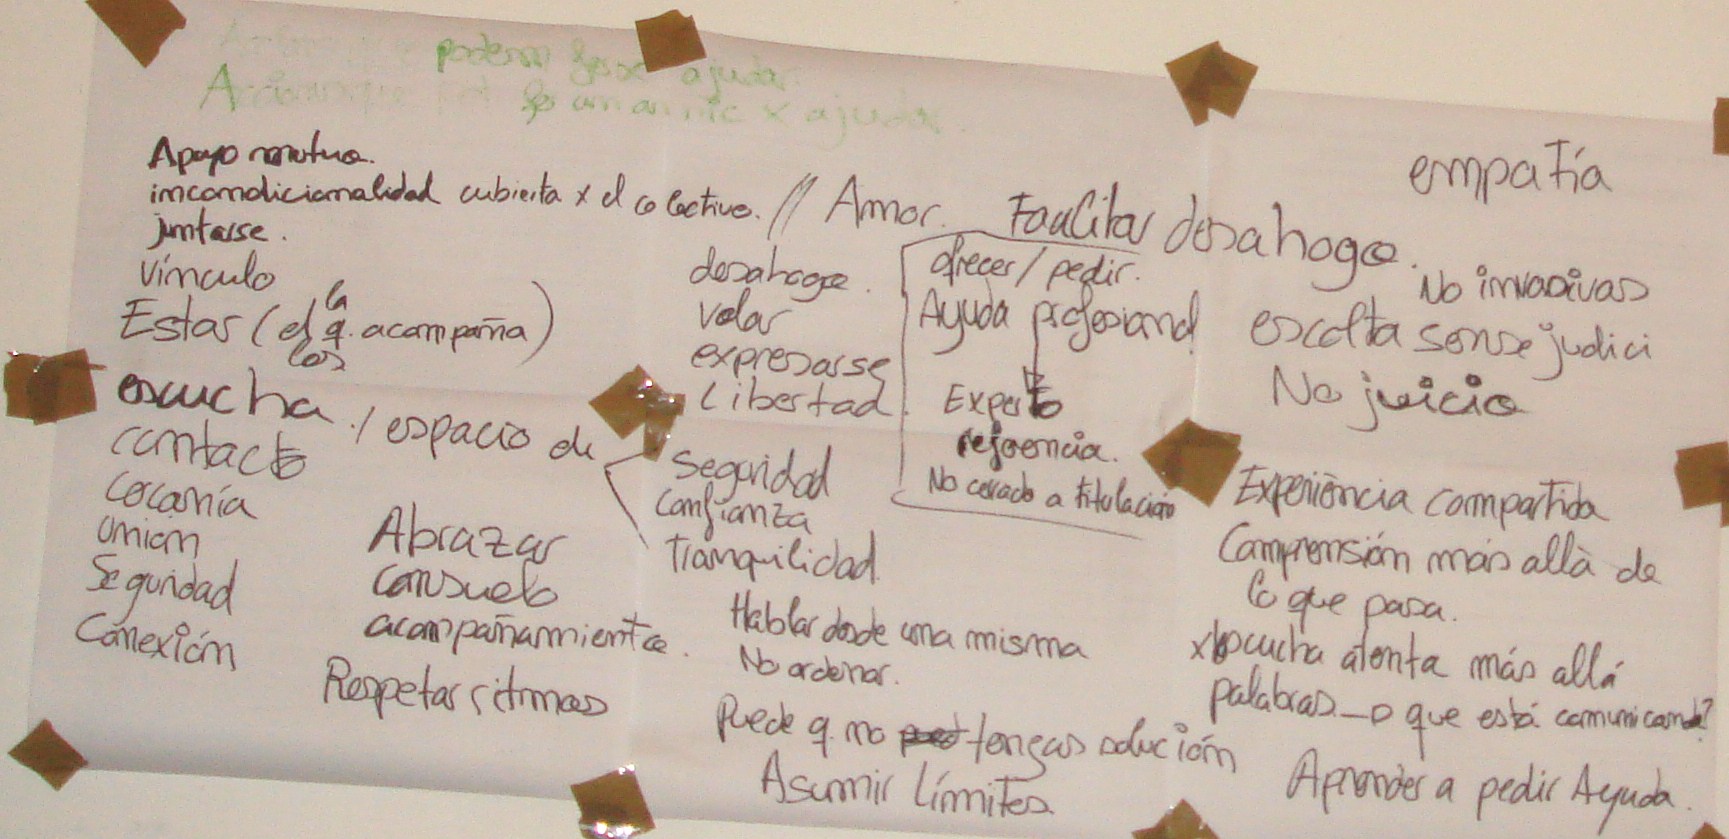 podem ajudar
x ajudar.
Apoyo mutuo.
incondicionalidad cubierta x el colectivo. // Amor.
juntarse.
vínculo
Estar (el la q. acompaña)
los
escucha / espacio de
contacto
cercanía
unión
Seguridad
Conexión
Abrazar
consuelo
acompañamiento.
Respetar ritmos
desahogo.
volar
expresarse
Libertad.
seguridad
confianza
tranquilidad.
Facilitar desahogo.
ofrecer / pedir.
Ayuda profesional
Experto
referencia.
No cerado a titulación
Hablar desde una misma
No ordenar.
Puede q. no tengas solución
Asumir límites
empatía
No invasivas
escolta sense judici
No juicio
Experiència compartida
Comprensión más allà de
lo que pasa.
x Escucha atenta más allá
palabras → que está comunicando?
Aprender a pedir Ayuda.